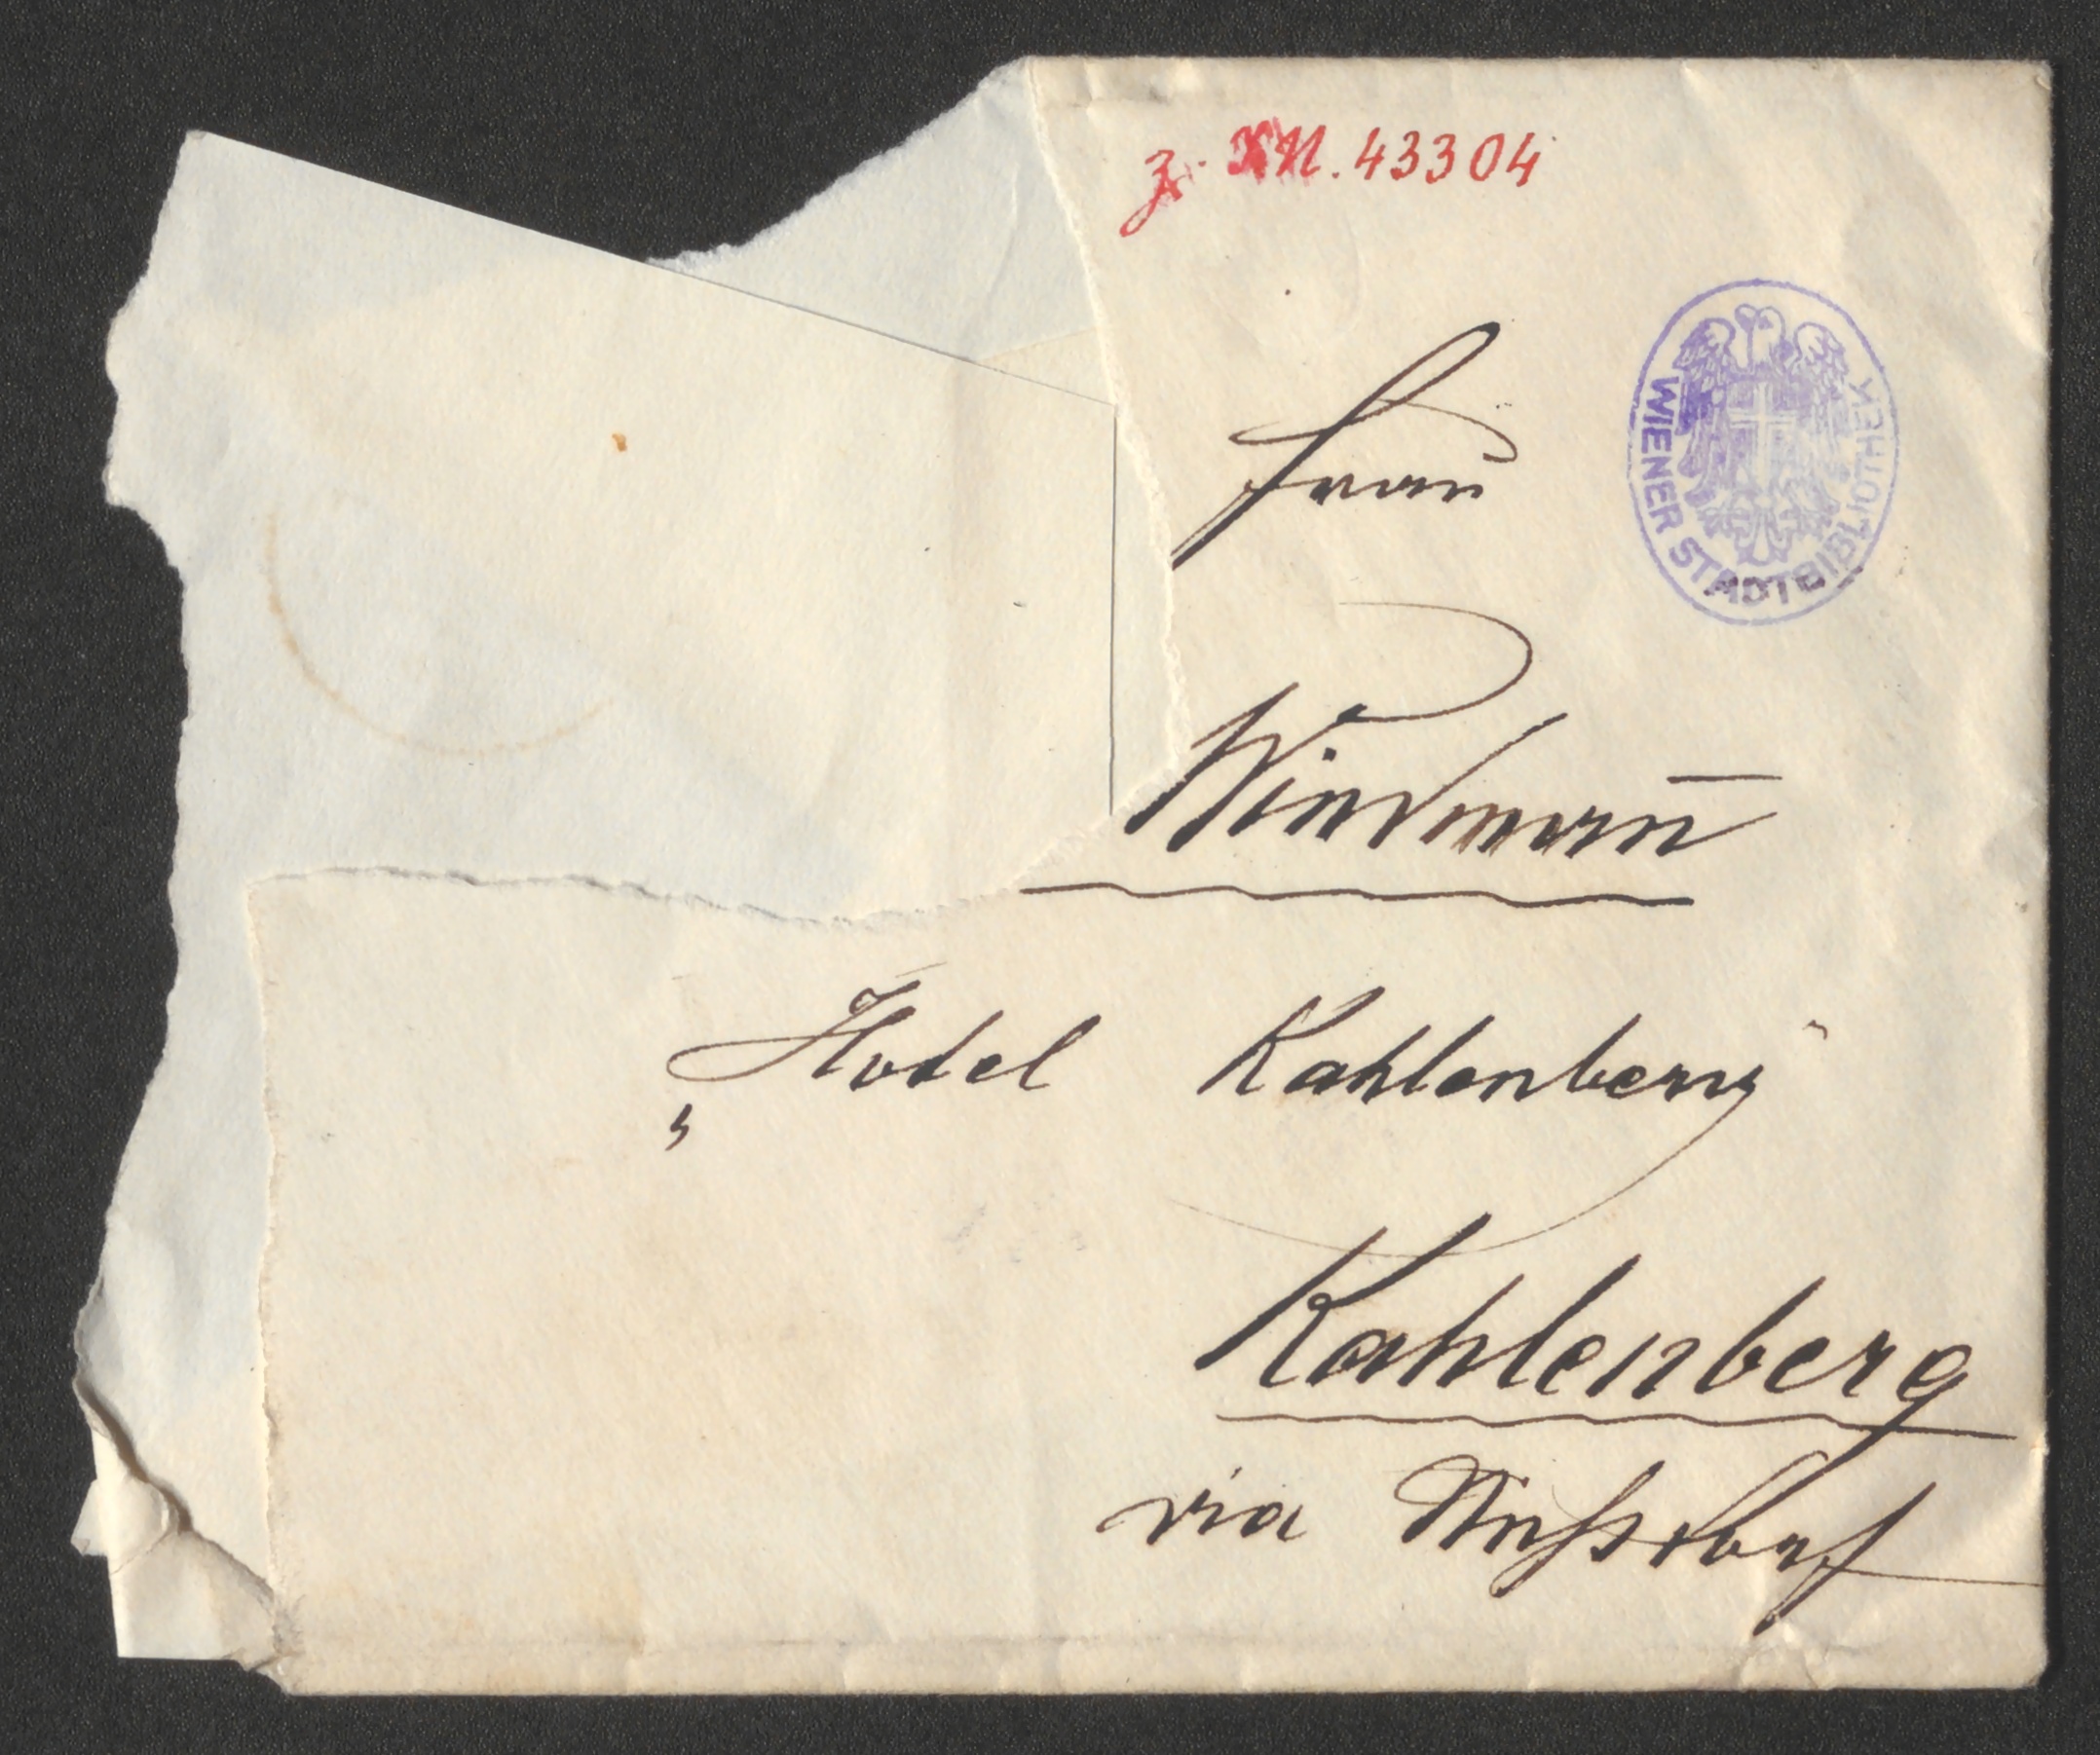 z. XN. 43304
WIENER STADTBIBLIOTHEK
Frau
Windmañ
„Hotel Kahlenberg"
Kahlenberg
via Nussdorf